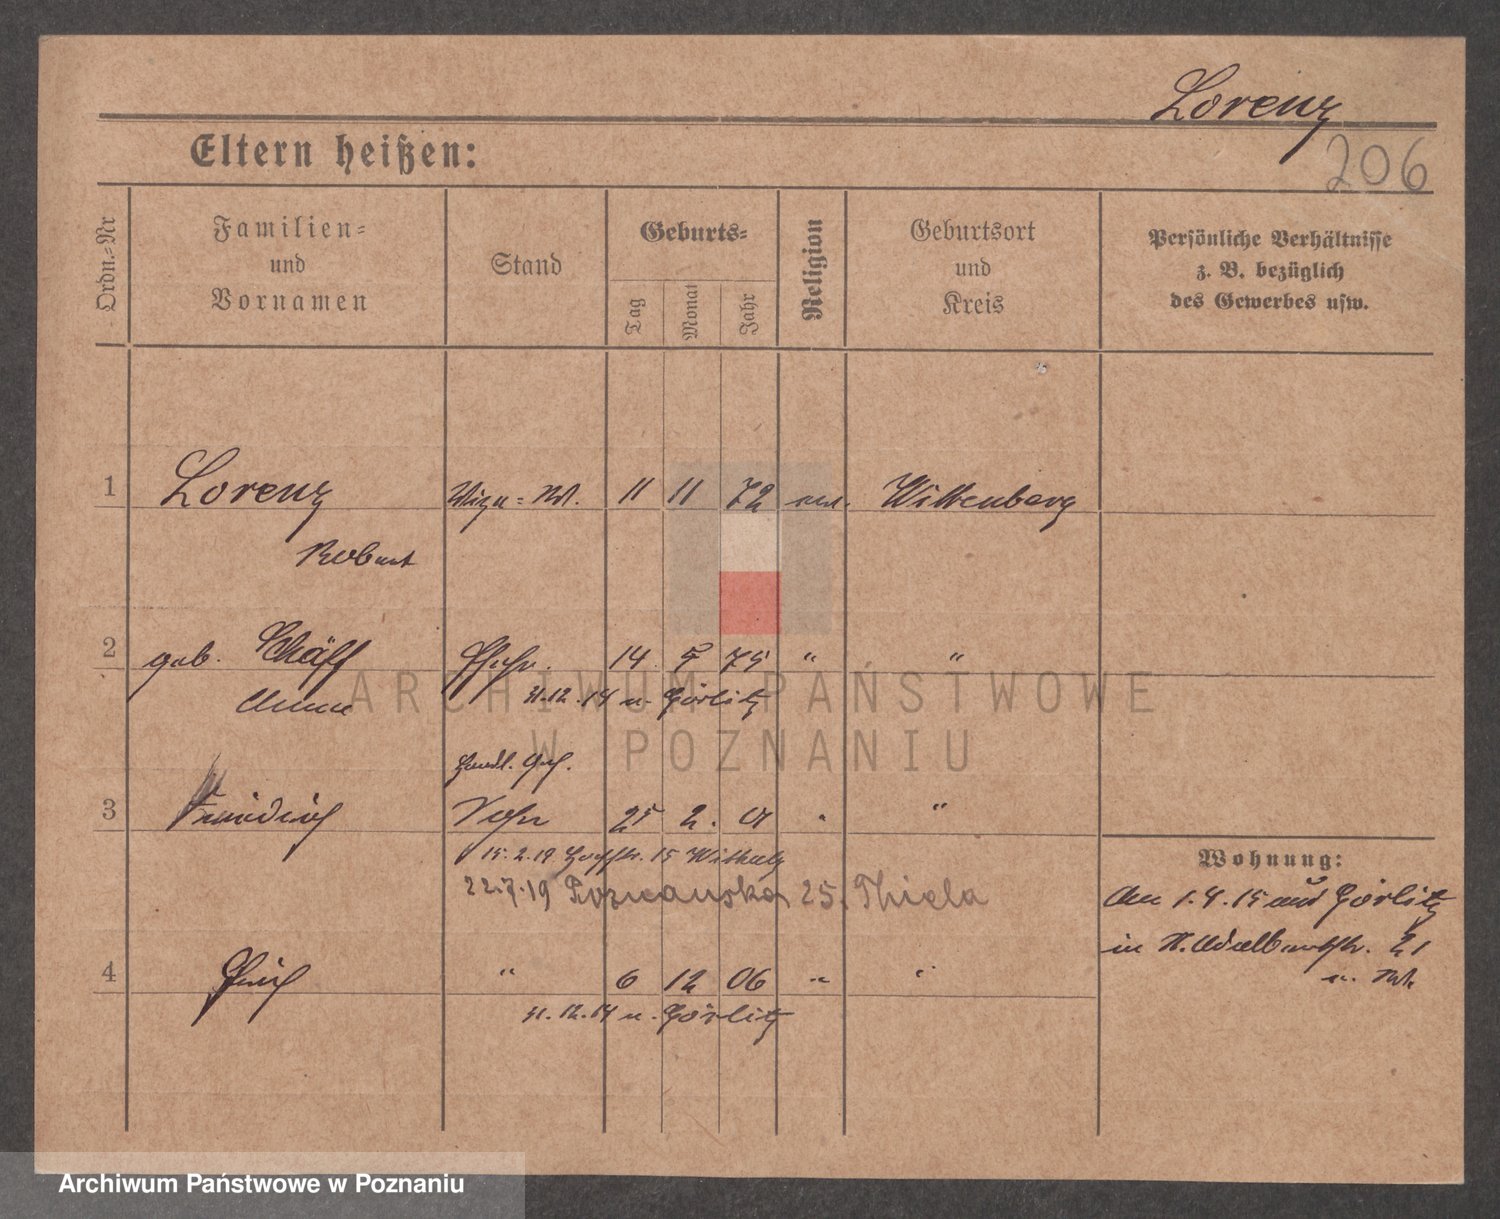 Lorenz
206
Eltern heißen:
Ordn.-Nr
Familien-
und
Vornamen
Stand
Geburts-
Tag
Monat
Jahr
Religion
Geburtsort
und
Kreis
Persönliche Verhältnisse
z. B. bezüglich
des Gewerbes usw.
1 Lorenz 11 11 72 Wittenberg
Robert
2 geb. Schäff Ehefr. 14 5 75 " "
Anna 31.12.14 n. Görlitz
ARCHIWUM PAŃSTWOWE
W POZNANIU
Handl. Geh.
3 Friedrich Sohn 25 2. 01 "
15.2.19 15
22.7.19 Poznańska 25. Thiela
Wohnung:
Am 1.4.15 aus Görlitz
in St. Adalbertstr. 21
4 Erich " 6 12 06 " "
31.12.14 n. Görlitz
Archiwum Państwowe w Poznaniu